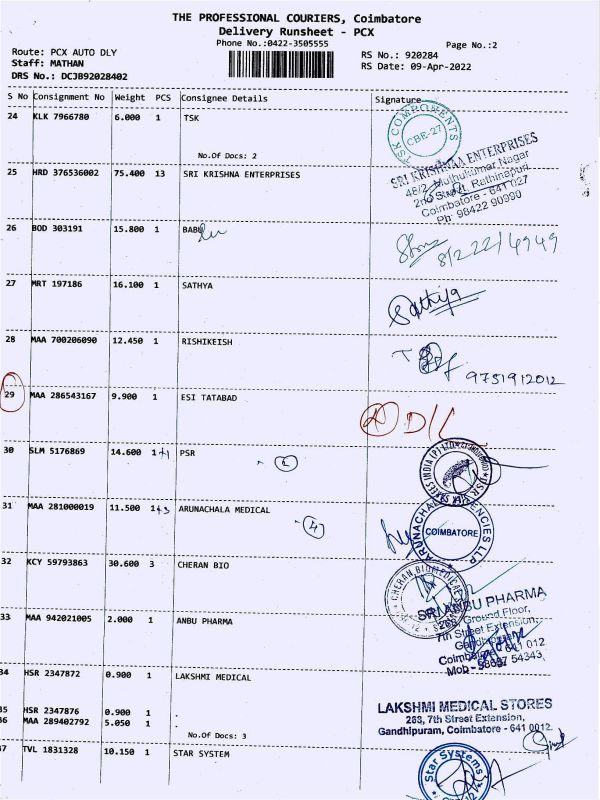 THE PROFESSIONAL COURIERS, Coimbatore
Delivery Runsheet - PCX
Phone No.:0422-3505555
Page No.:2
Route: PCX AUTO DLY
RS No.: 920284
Staff: MATHAN
RS Date: 09-Apr-2022
DRS No.: DCJB92028402
S No Consignment No Weight PCS Consignee Details Signature
24 KLK 7966780 6.000 1 TSK
TSK COMPONENTS
CBE-27
No.Of Docs: 2
25 HRD 376536002 75.400 13 SRI KRISHNA ENTERPRISES
SRI KRISHNAA ENTERPRISES
48/2, Muthukumar Nagar
2nd Street, Rathinapuri
Coimbatore - 641 027
Ph: 98422 90990
26 BOD 303191 15.800 1 BABU
8/222/4949
27 MRT 197186 16.100 1 SATHYA
Sathiya
28 MAA 700206090 12.450 1 RISHIKEISH
9751912012
29 MAA 286543167 9.900 1 ESI TATABAD
30 SLM 5176869 14.600 1+1 PSR
31 MAA 281000019 11.500 1+3 ARUNACHALA MEDICAL
- 4
COIMBATORE
32 KCY 59793863 30.600 3 CHERAN BIO
CHERAN BIOMEDICAL
33 MAA 942021005 2.000 1 ANBU PHARMA
SRI ANBU PHARMA
Ground Floor,
7th Street Extension,
Coimbatore - 641 012
54343
34 HSR 2347872 0.900 1 LAKSHMI MEDICAL
35 HSR 2347876 0.900 1 .
36 MAA 289402792 5.050 1 .
No.Of Docs: 3
LAKSHMI MEDICAL STORES
263, 7th Street Extension,
Gandhipuram, Coimbatore - 641 0012.
37 TVL 1831328 10.150 1 STAR SYSTEM
Star Systems